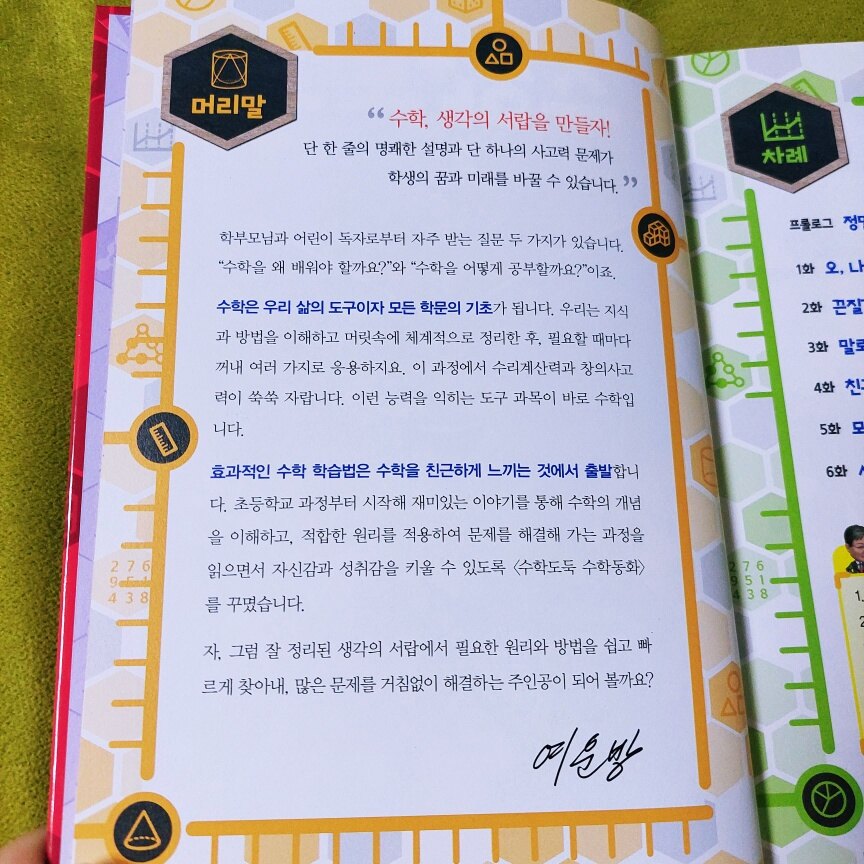 머리말
“수학, 생각의 서랍을 만들자!
단 한 줄의 명쾌한 설명과 단 하나의 사고력 문제가
학생의 꿈과 미래를 바꿀 수 있습니다.”
학부모님과 어린이 독자로부터 자주 받는 질문 두 가지가 있습니다.
“수학을 왜 배워야 할까요?”와 “수학을 어떻게 공부할까요?”이죠.
수학은 우리 삶의 도구이자 모든 학문의 기초가 됩니다. 우리는 지식
과 방법을 이해하고 머릿속에 체계적으로 정리한 후, 필요할 때마다
꺼내 여러 가지로 응용하지요. 이 과정에서 수리계산력과 창의사고
력이 쑥쑥 자랍니다. 이런 능력을 익히는 도구 과목이 바로 수학입
니다.
효과적인 수학 학습법은 수학을 친근하게 느끼는 것에서 출발합니
다. 초등학교 과정부터 시작해 재미있는 이야기를 통해 수학의 개념
을 이해하고, 적합한 원리를 적용하여 문제를 해결해 가는 과정을
읽으면서 자신감과 성취감을 키울 수 있도록 〈수학도둑 수학동화〉
를 꾸몄습니다.
자, 그럼 잘 정리된 생각의 서랍에서 필요한 원리와 방법을 쉽고 빠
르게 찾아내, 많은 문제를 거침없이 해결하는 주인공이 되어 볼까요?
여운방
2 7 6
9 5 1
4 3 8
차례
프롤로그
1화 오, 나
2화 끈질
3화 말로
4화 친
5화 모
6화
2 7 6
9 5 1
4 3 8
1.
2